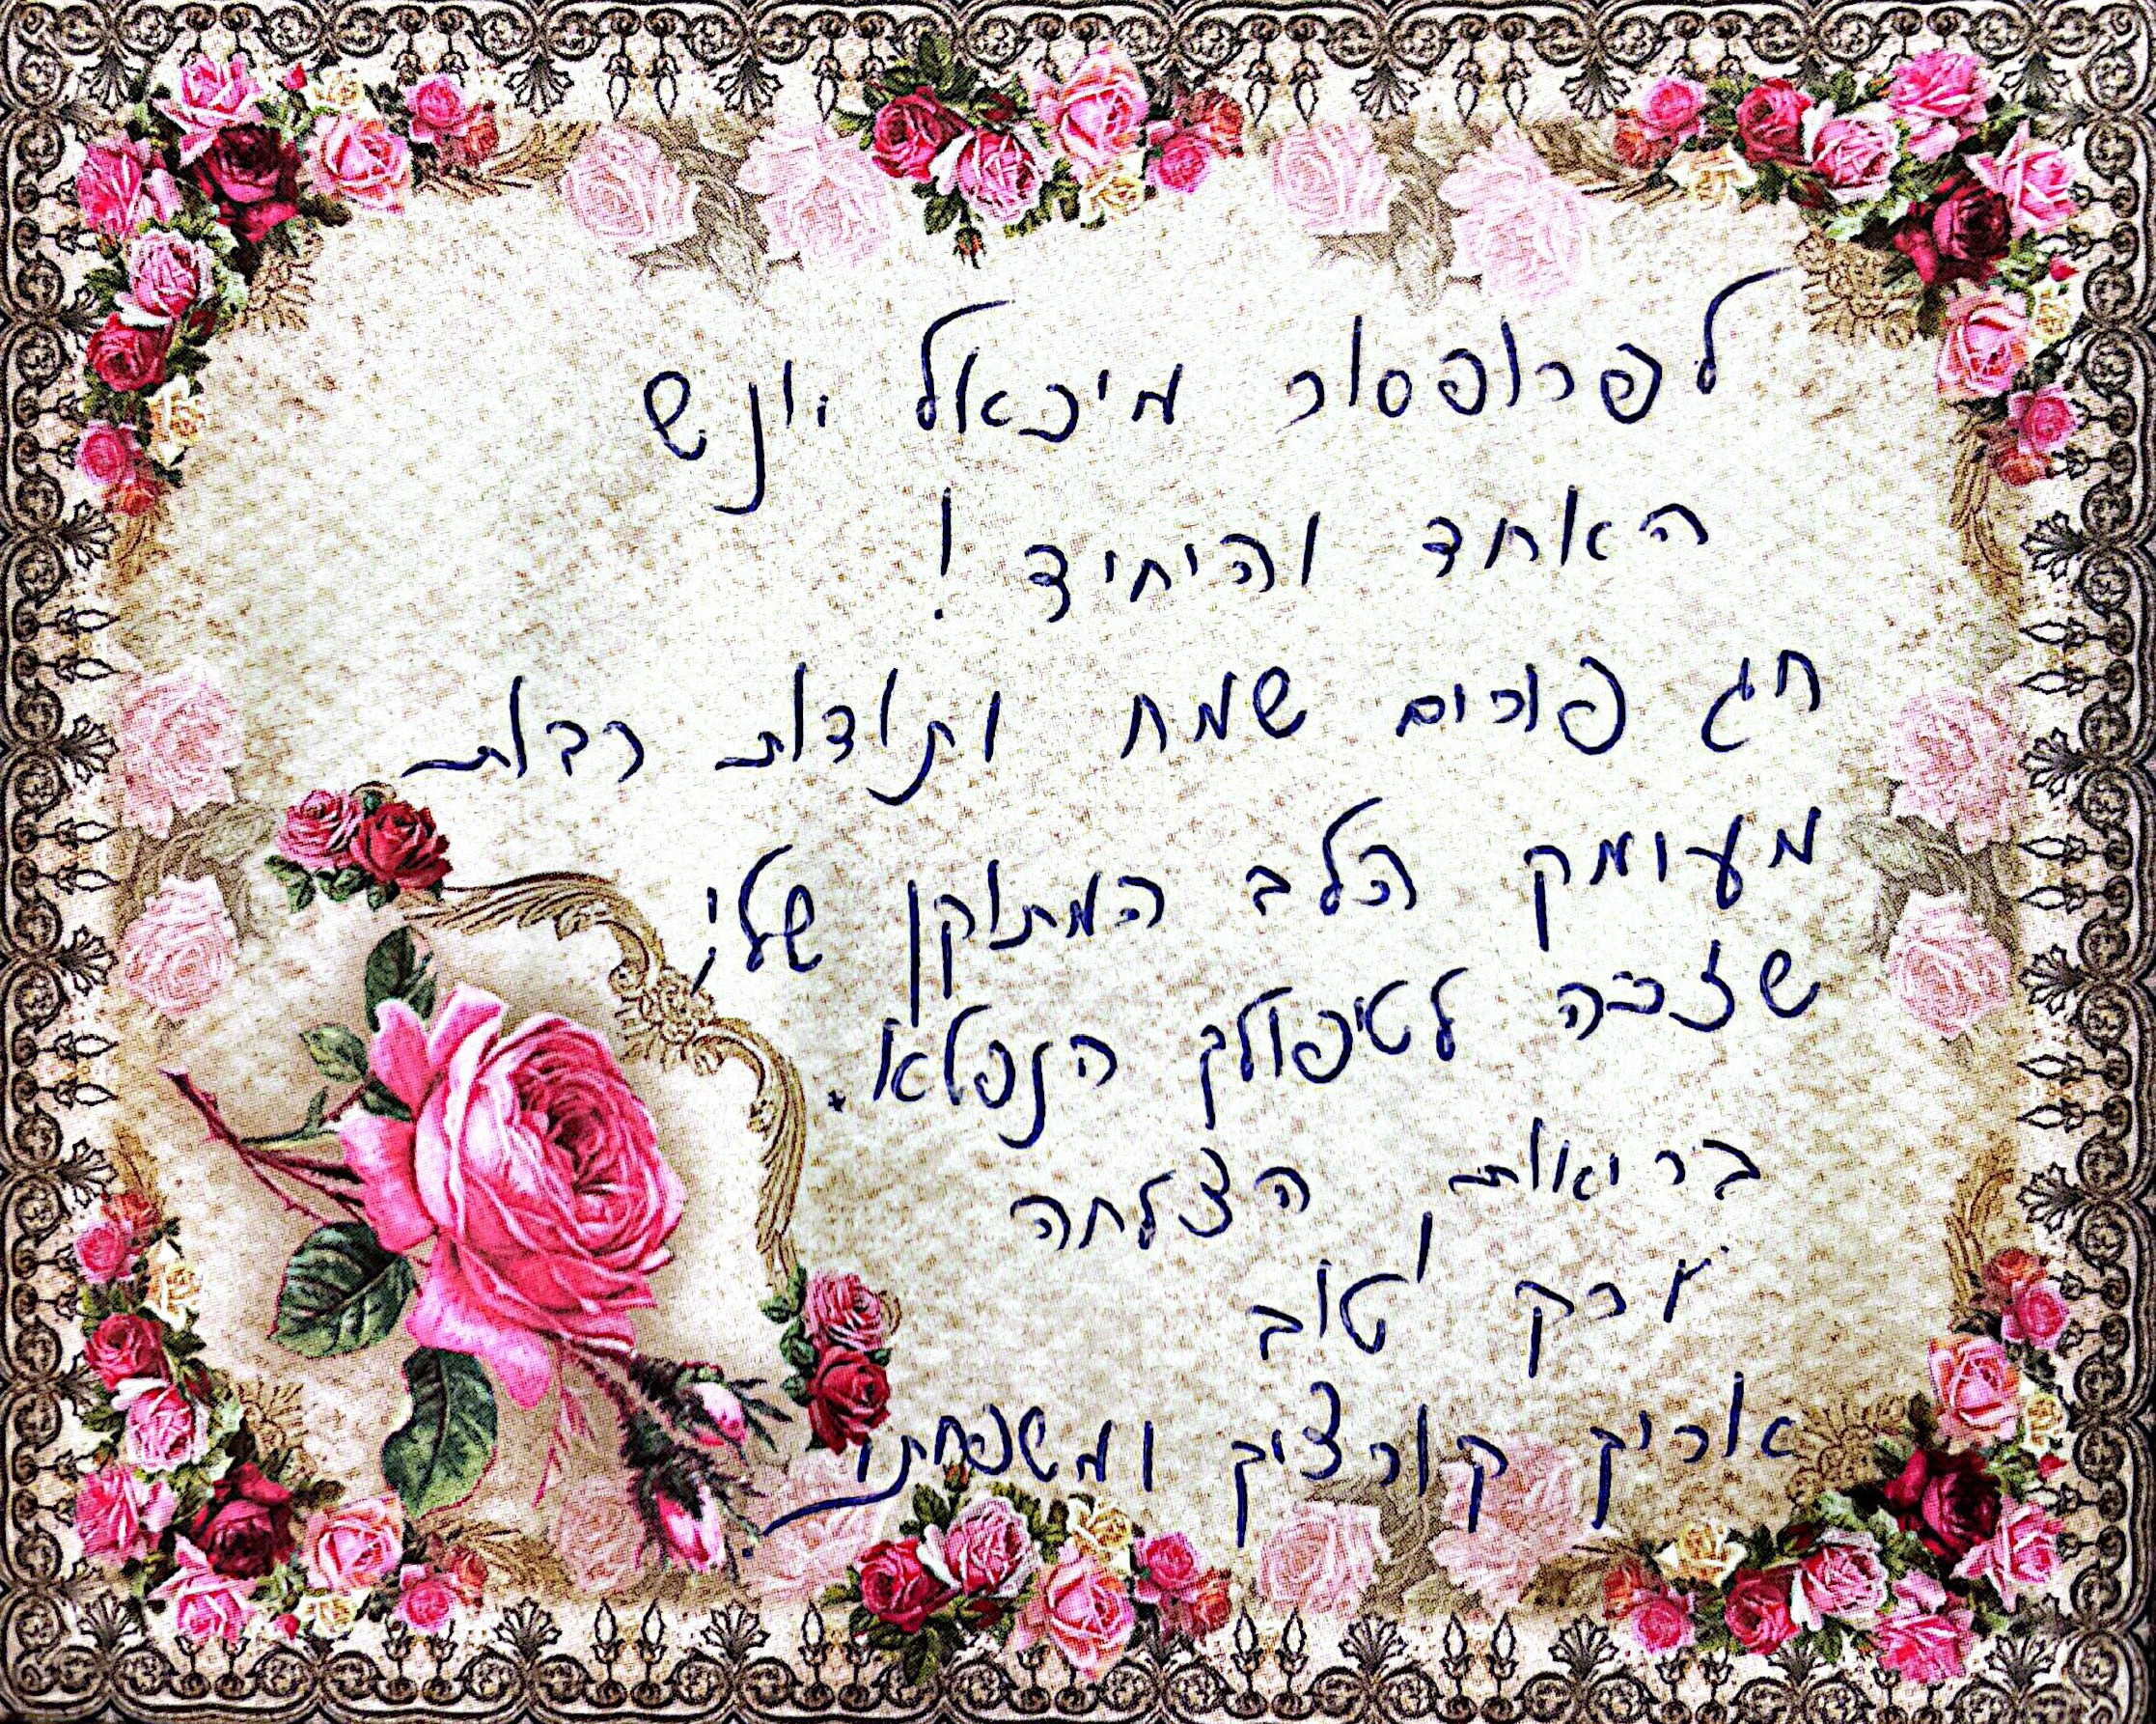 לפרופסור מיכאל יונש
האחד והיחיד !
חג פורים שמח ותודות רבות
מעומק הלב המתוקן שלי,
שזכה לטיפולך הנפלא.
בריאות, הצלחה
ורק טוב
אריק קורציק ומשפחתו